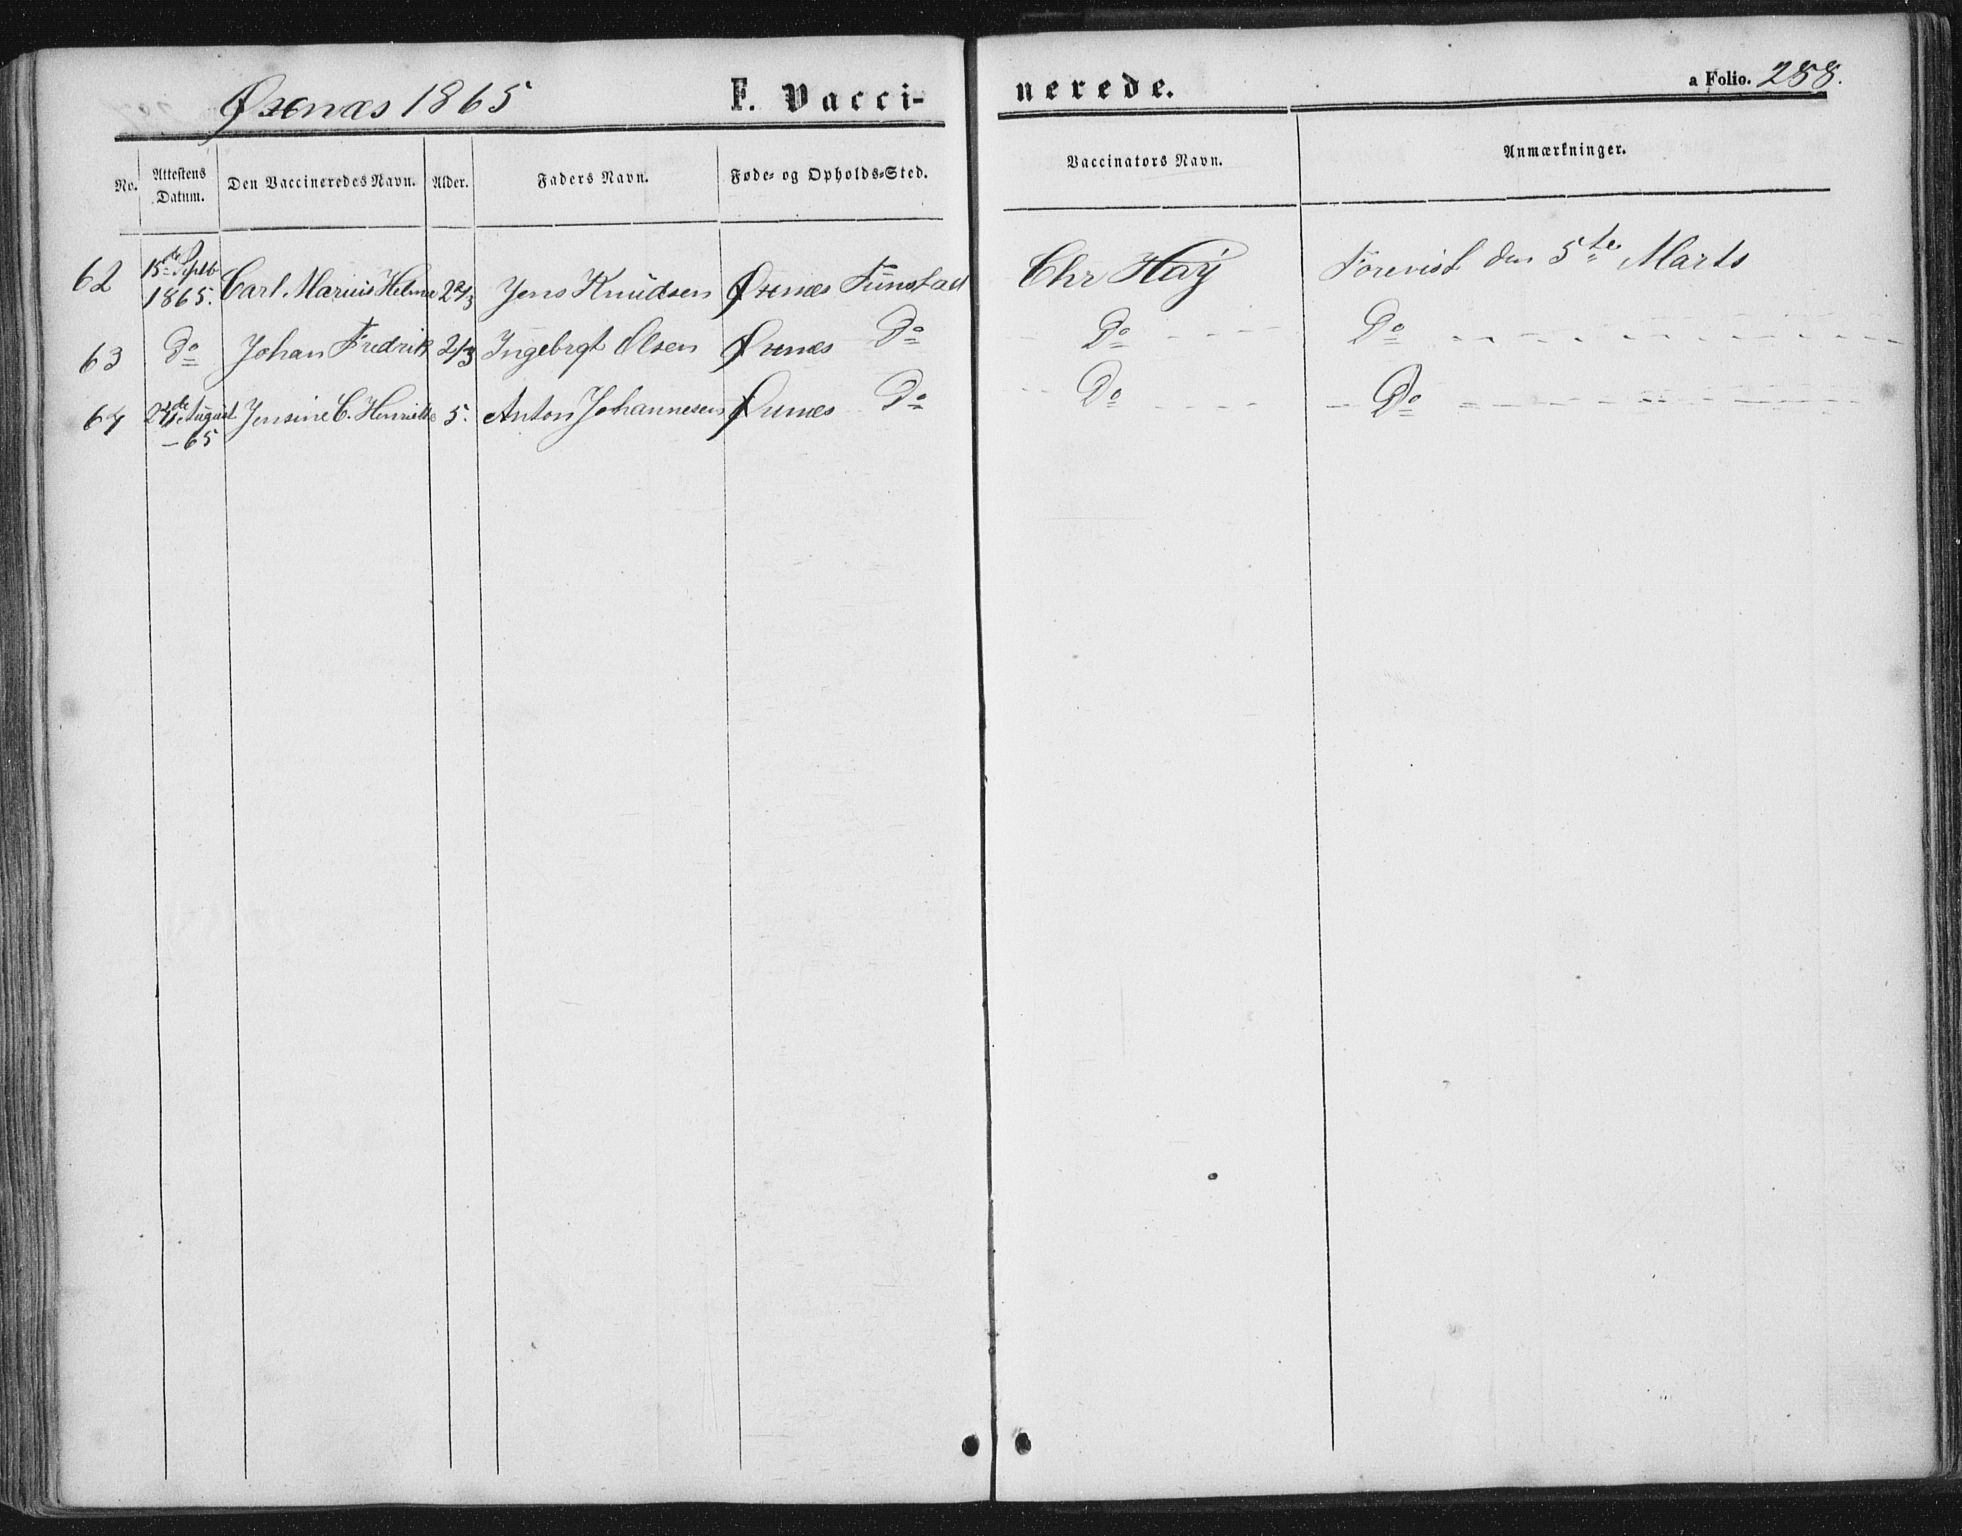 Øxnæs 1865 F. Vacci- nerede. a Folio. 258.
No. Attestens Datum. Den Vaccineredes Navn. Alder. Faders Navn. Føde- og Opholds-Sted. Vaccinators Navn. Anmærkninger.
62 15de Septb 1865. Carl Marius Helmer 2 2/3 Jens Knudsen Øxnæs Tunstad Chr Høy Forevist den 5te Marts
63 Do Johan Fredrik 2/3 Ingebrgt Olsen Øxnæs Do Do Do
64 24de August -65 Jensine C. Henriette 5. Anton Johannesen Øxnæs Do Do Do